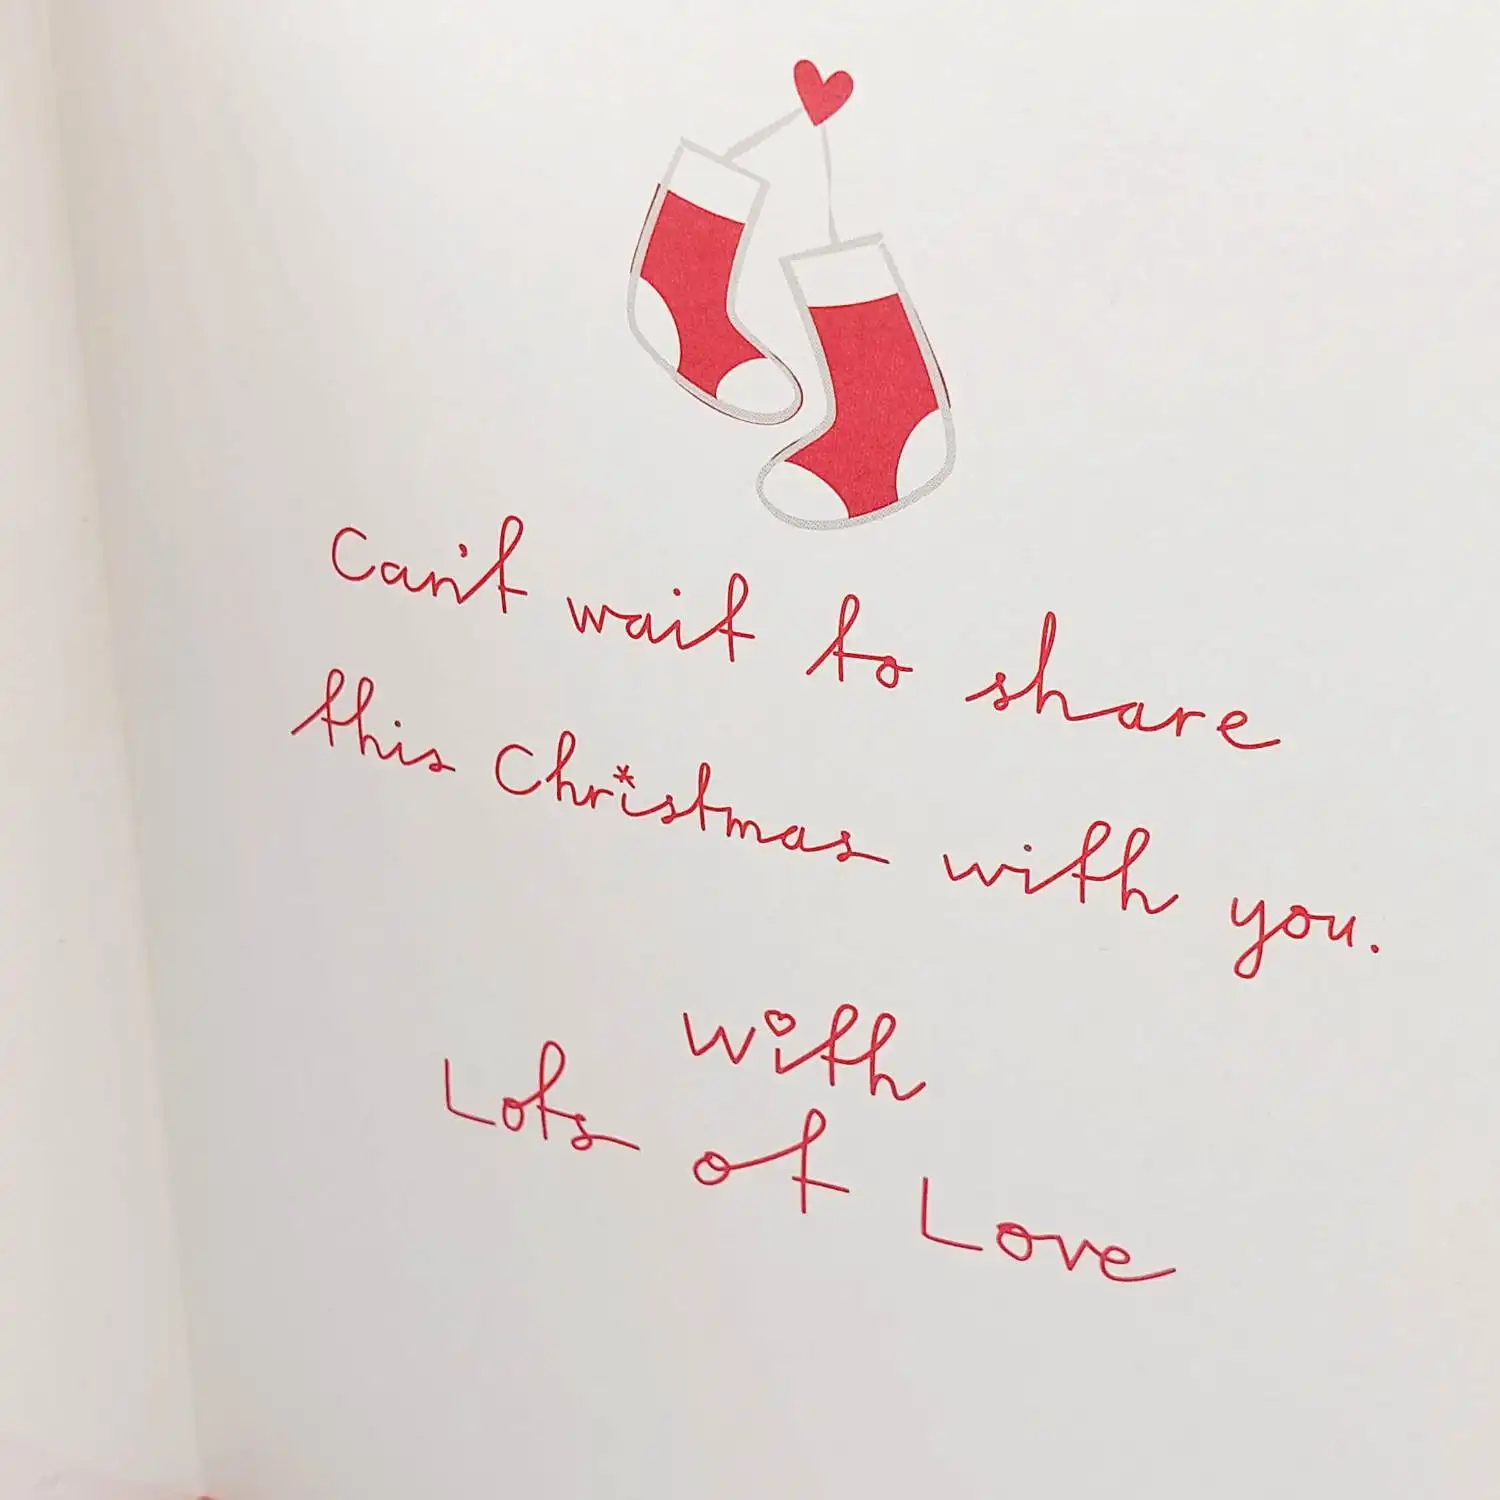 Can't wait to share
this Christmas with you.
With
Lots of Love